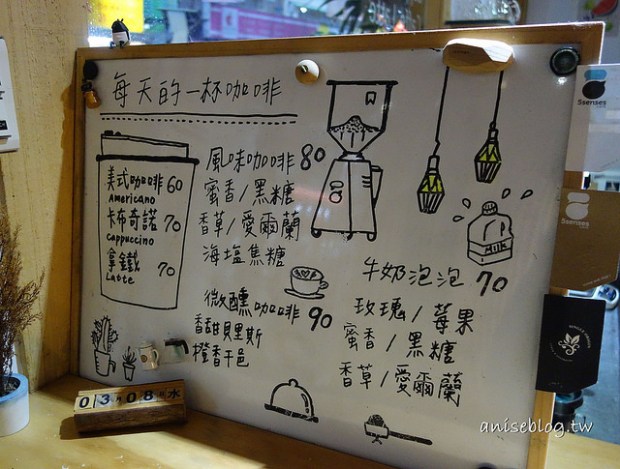 每天的一杯咖啡
美式咖啡 60
Americano
卡布奇諾 70
Cappuccino
拿鐵 70
Latte
風味咖啡 80
蜜香/黑糖
香草/愛爾蘭
海塩焦糖
微醺咖啡 90
香甜貝里斯
橙香干邑
牛奶泡泡 70
玫瑰/莓果
蜜香/黑糖
香草/愛爾蘭
Milk
03 08 水
5senses
5senses
aniseblog.tw